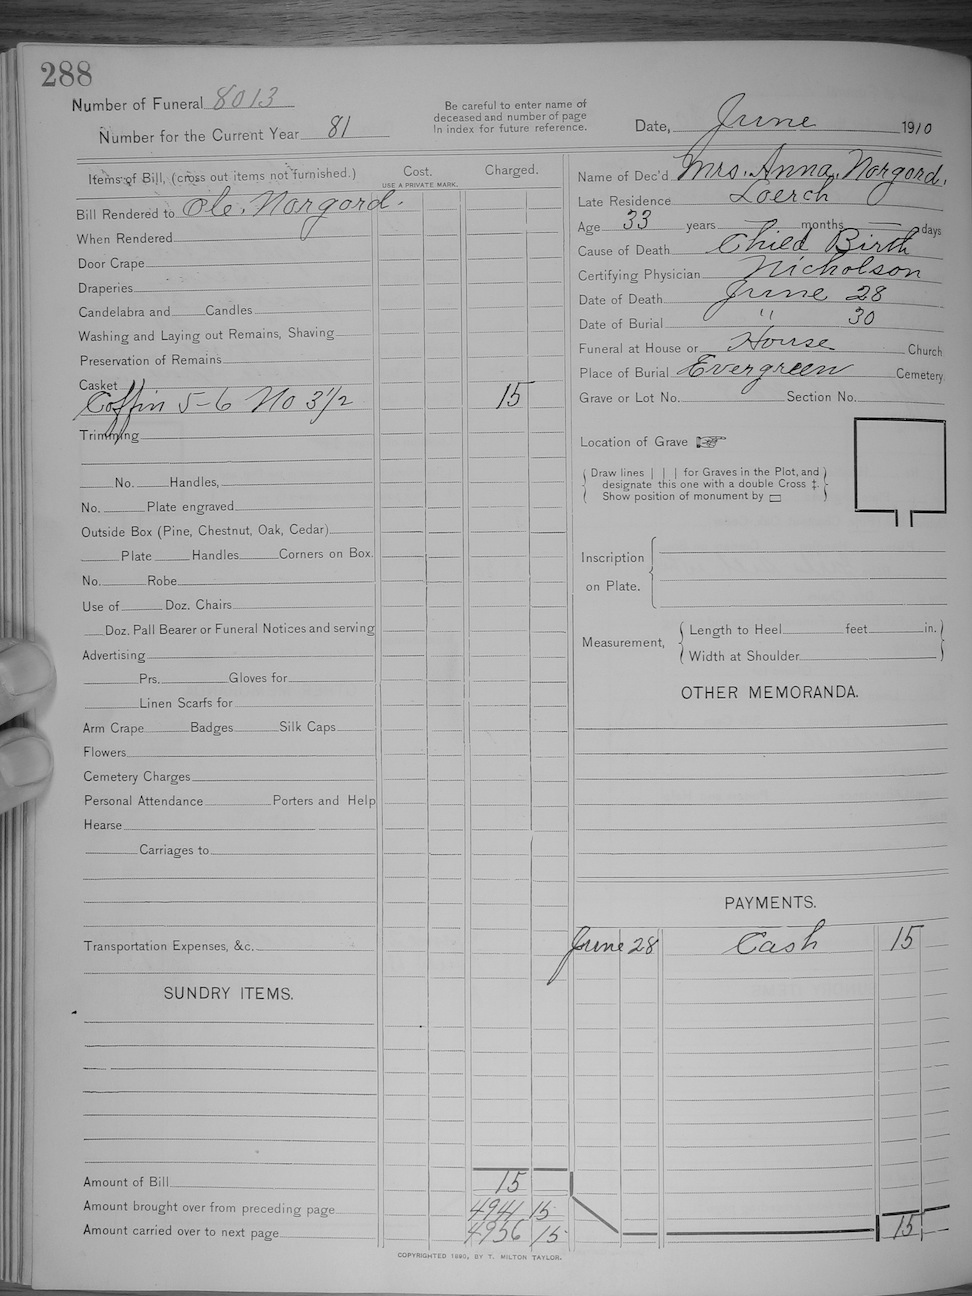 288
Number of Funeral 8013
Number for the Current Year 81
Be careful to enter name of
deceased and number of page
in index for future reference.
Date, June 1910
Items of Bill, (cross out items not furnished.)
Cost.
USE A PRIVATE MARK.
Charged.
Bill Rendered to Ole. Norgord.
When Rendered
Door Crape
Draperies
Candelabra and Candles
Washing and Laying out Remains, Shaving
Preservation of Remains
Casket
Coffin 5-6 No 3 1/2 15
Trimming
No. Handles,
No. Plate engraved
Outside Box (Pine, Chestnut, Oak, Cedar)
Plate Handles Corners on Box.
No. Robe
Use of Doz. Chairs
Doz. Pall Bearer or Funeral Notices and serving
Advertising
Prs. Gloves for
Linen Scarfs for
Arm Crape Badges Silk Caps
Flowers
Cemetery Charges
Personal Attendance Porters and Help
Hearse
Carriages to
Transportation Expenses, &c.
SUNDRY ITEMS.
Amount of Bill 15
Amount brought over from preceding page 4941 15
Amount carried over to next page 4956 15
Name of Dec'd Mrs. Anna, Norgord.
Late Residence Loerch
Age 33 years months days
Cause of Death Child Birth
Certifying Physician Nicholson
Date of Death June 28
Date of Burial " 30
Funeral at House or House Church
Place of Burial Evergreen Cemetery
Grave or Lot No. Section No.
Location of Grave
Draw lines | | | for Graves in the Plot, and
designate this one with a double Cross ‡.
Show position of monument by ▭
Inscription
on Plate.
Measurement,
Length to Heel feet in.
Width at Shoulder
OTHER MEMORANDA.
PAYMENTS.
June 28 Cash 15
15
COPYRIGHTED 1895, BY T. MILTON TAYLOR.